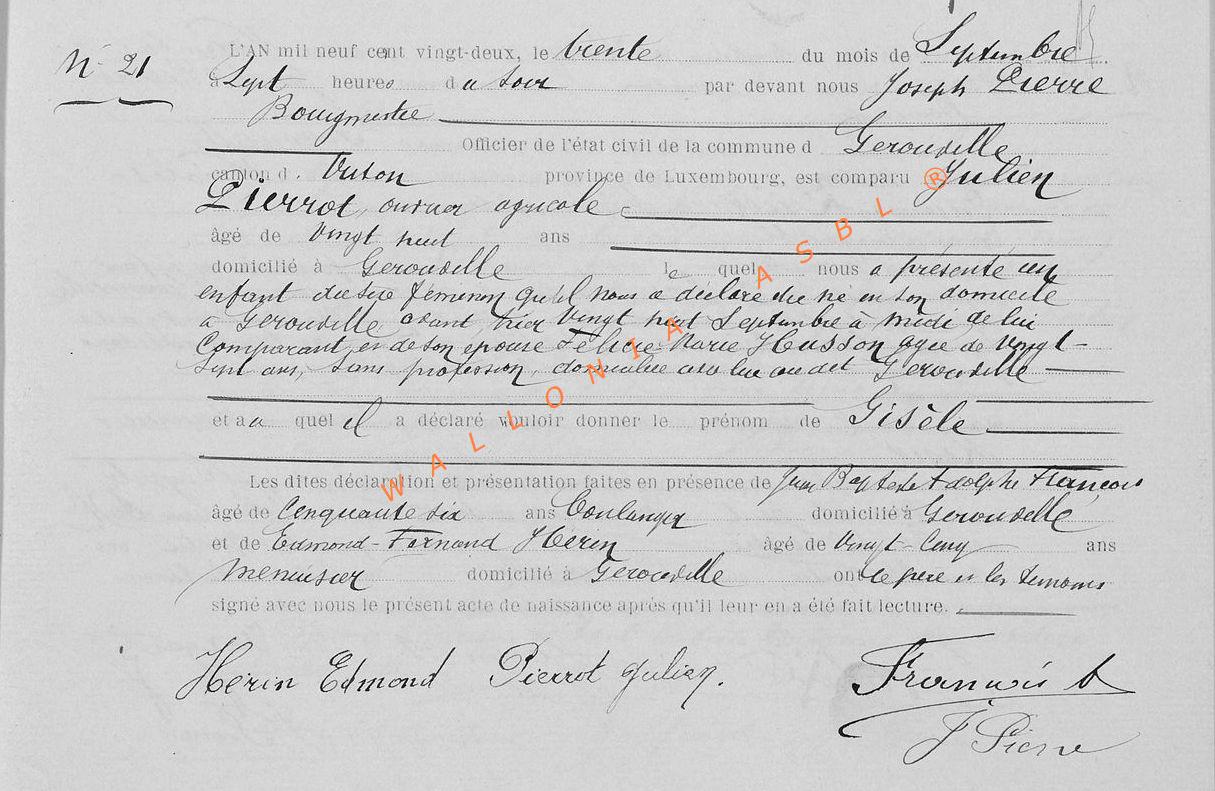 N° 21
L'AN mil neuf cent vingt-deux, le trente du mois de Septembre
à Sept heures du soir par devant nous Joseph Pierre
Bourgmestre
Officier de l'état civil de la commune d Gerouville
canton d. Virton province de Luxembourg, est comparu Julien
Pierrot, ouvrier agricole
âgé de Vingt huit ans
domicilié à Gerouville le quel nous a présenté un
enfant du sexe féminin qu'il nous a déclaré être né en son domicile
à Gerouville, avant hier Vingt huit Septembre à midi de lui
Comparant, et de son épouse Félicie-Marie Husson agée de Vingt-
Sept ans, sans profession, domiciliée avec lui au dit Gerouville
et au quel il a déclaré vouloir donner le prénom de Gisèle
Les dites déclaration et présentation faites en présence de Jean Baptiste Adolphe François
âgé de Cinquante six ans Boulanger domicilié à Gerouville
et de Edmond-Fernand Hérin âgé de Vingt-Cinq ans
menuisier domicilié à Gerouville ont le père et les témoins
signé avec nous le présent acte de naissance après qu'il leur en a été fait lecture.
Herin Edmond Pierrot Julien. François A
J Pierre
WALLONIA ASBL ®